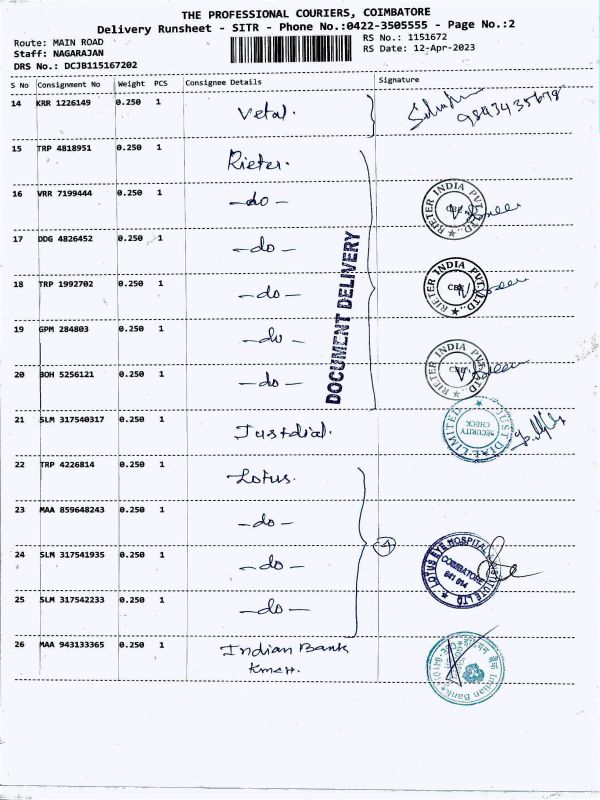 THE PROFESSIONAL COURIERS, COIMBATORE
Delivery Runsheet - SITR - Phone No.:0422-3505555 - Page No.:2
Route: MAIN ROAD
RS No.: 1151672
Staff: NAGARAJAN
RS Date: 12-Apr-2023
DRS No.: DCJB115167202
S No Consignment No Weight PCS Consignee Details Signature
14 KRR 1226149 0.250 1 Vetal. 9843435678
15 TRP 4818951 0.250 1 Rieter.
16 VRR 7199444 0.250 1 -do- RIETER INDIA PVT. LTD. CBE
17 DDG 4826452 0.250 1 -do-
18 TRP 1992702 0.250 1 -do- RIETER INDIA PVT. LTD. CBE
19 GPM 284803 0.250 1 -do-
20 BOH 5256121 0.250 1 -do- RIETER INDIA PVT. LTD. CBE
DOCUMENT DELIVERY
21 SLM 317540317 0.250 1 Justdial. JUST DIAL LIMITED SECURITY CHECK
22 TRP 4226814 0.250 1 Lotus.
23 MAA 859648243 0.250 1 -do-
4
24 SLM 317541935 0.250 1 -do- LOTUS EYE HOSPITAL & INSTITUTE LTD COIMBATORE 641 014
25 SLM 317542233 0.250 1 -do-
26 MAA 943133365 0.250 1 Indian Bank इंडियन बैंक Indian Bank
KMCH.